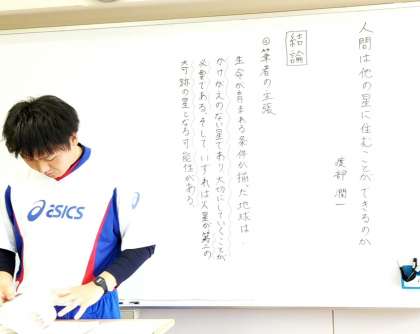 人間は他の星に住むことができるのか
渡部 潤一
結論
◎筆者の主張
生命が育まれる条件が揃った地球は、
かけがえのない星であり大切にしていくことが
必要である。そして、いずれは火星が第二の
奇跡の星となる可能性がある。
asics